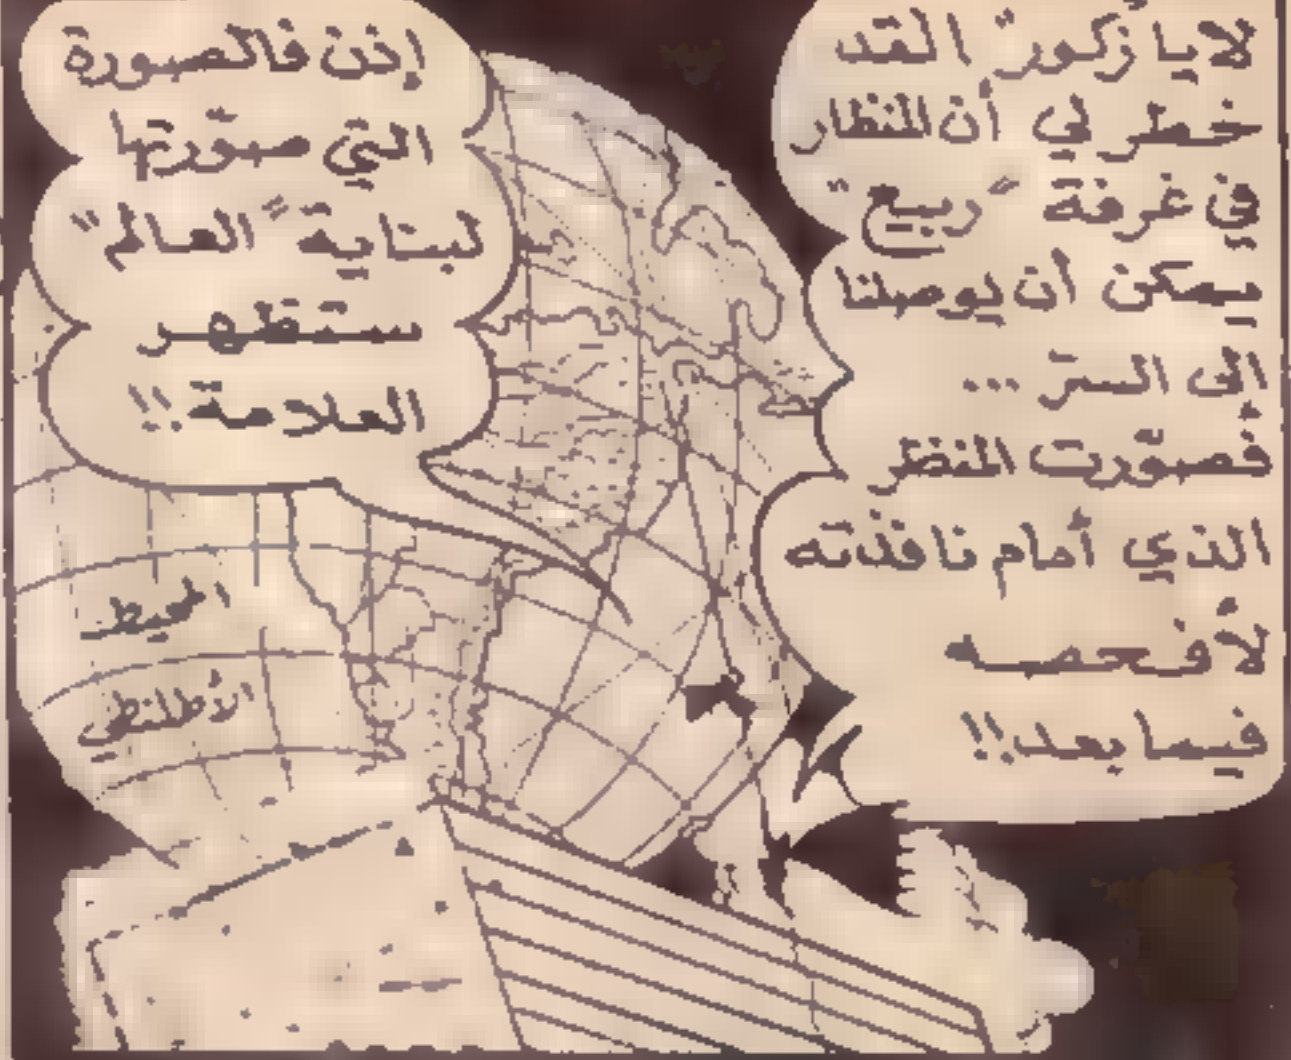 لا يا "زكور" لقد
خطر لي أن المنظار
في غرفة "ربيع"
يمكن أن يوصلنا
إلى السرّ ...
فصوّرت المنظر
الذي أمام نافذته
لأفحصه
فيما بعد!!
إذن فالصورة
التي صوّرتها
لبناية "العالم"
ستظهر
العلامة!!
المحيط
الأطلنطي